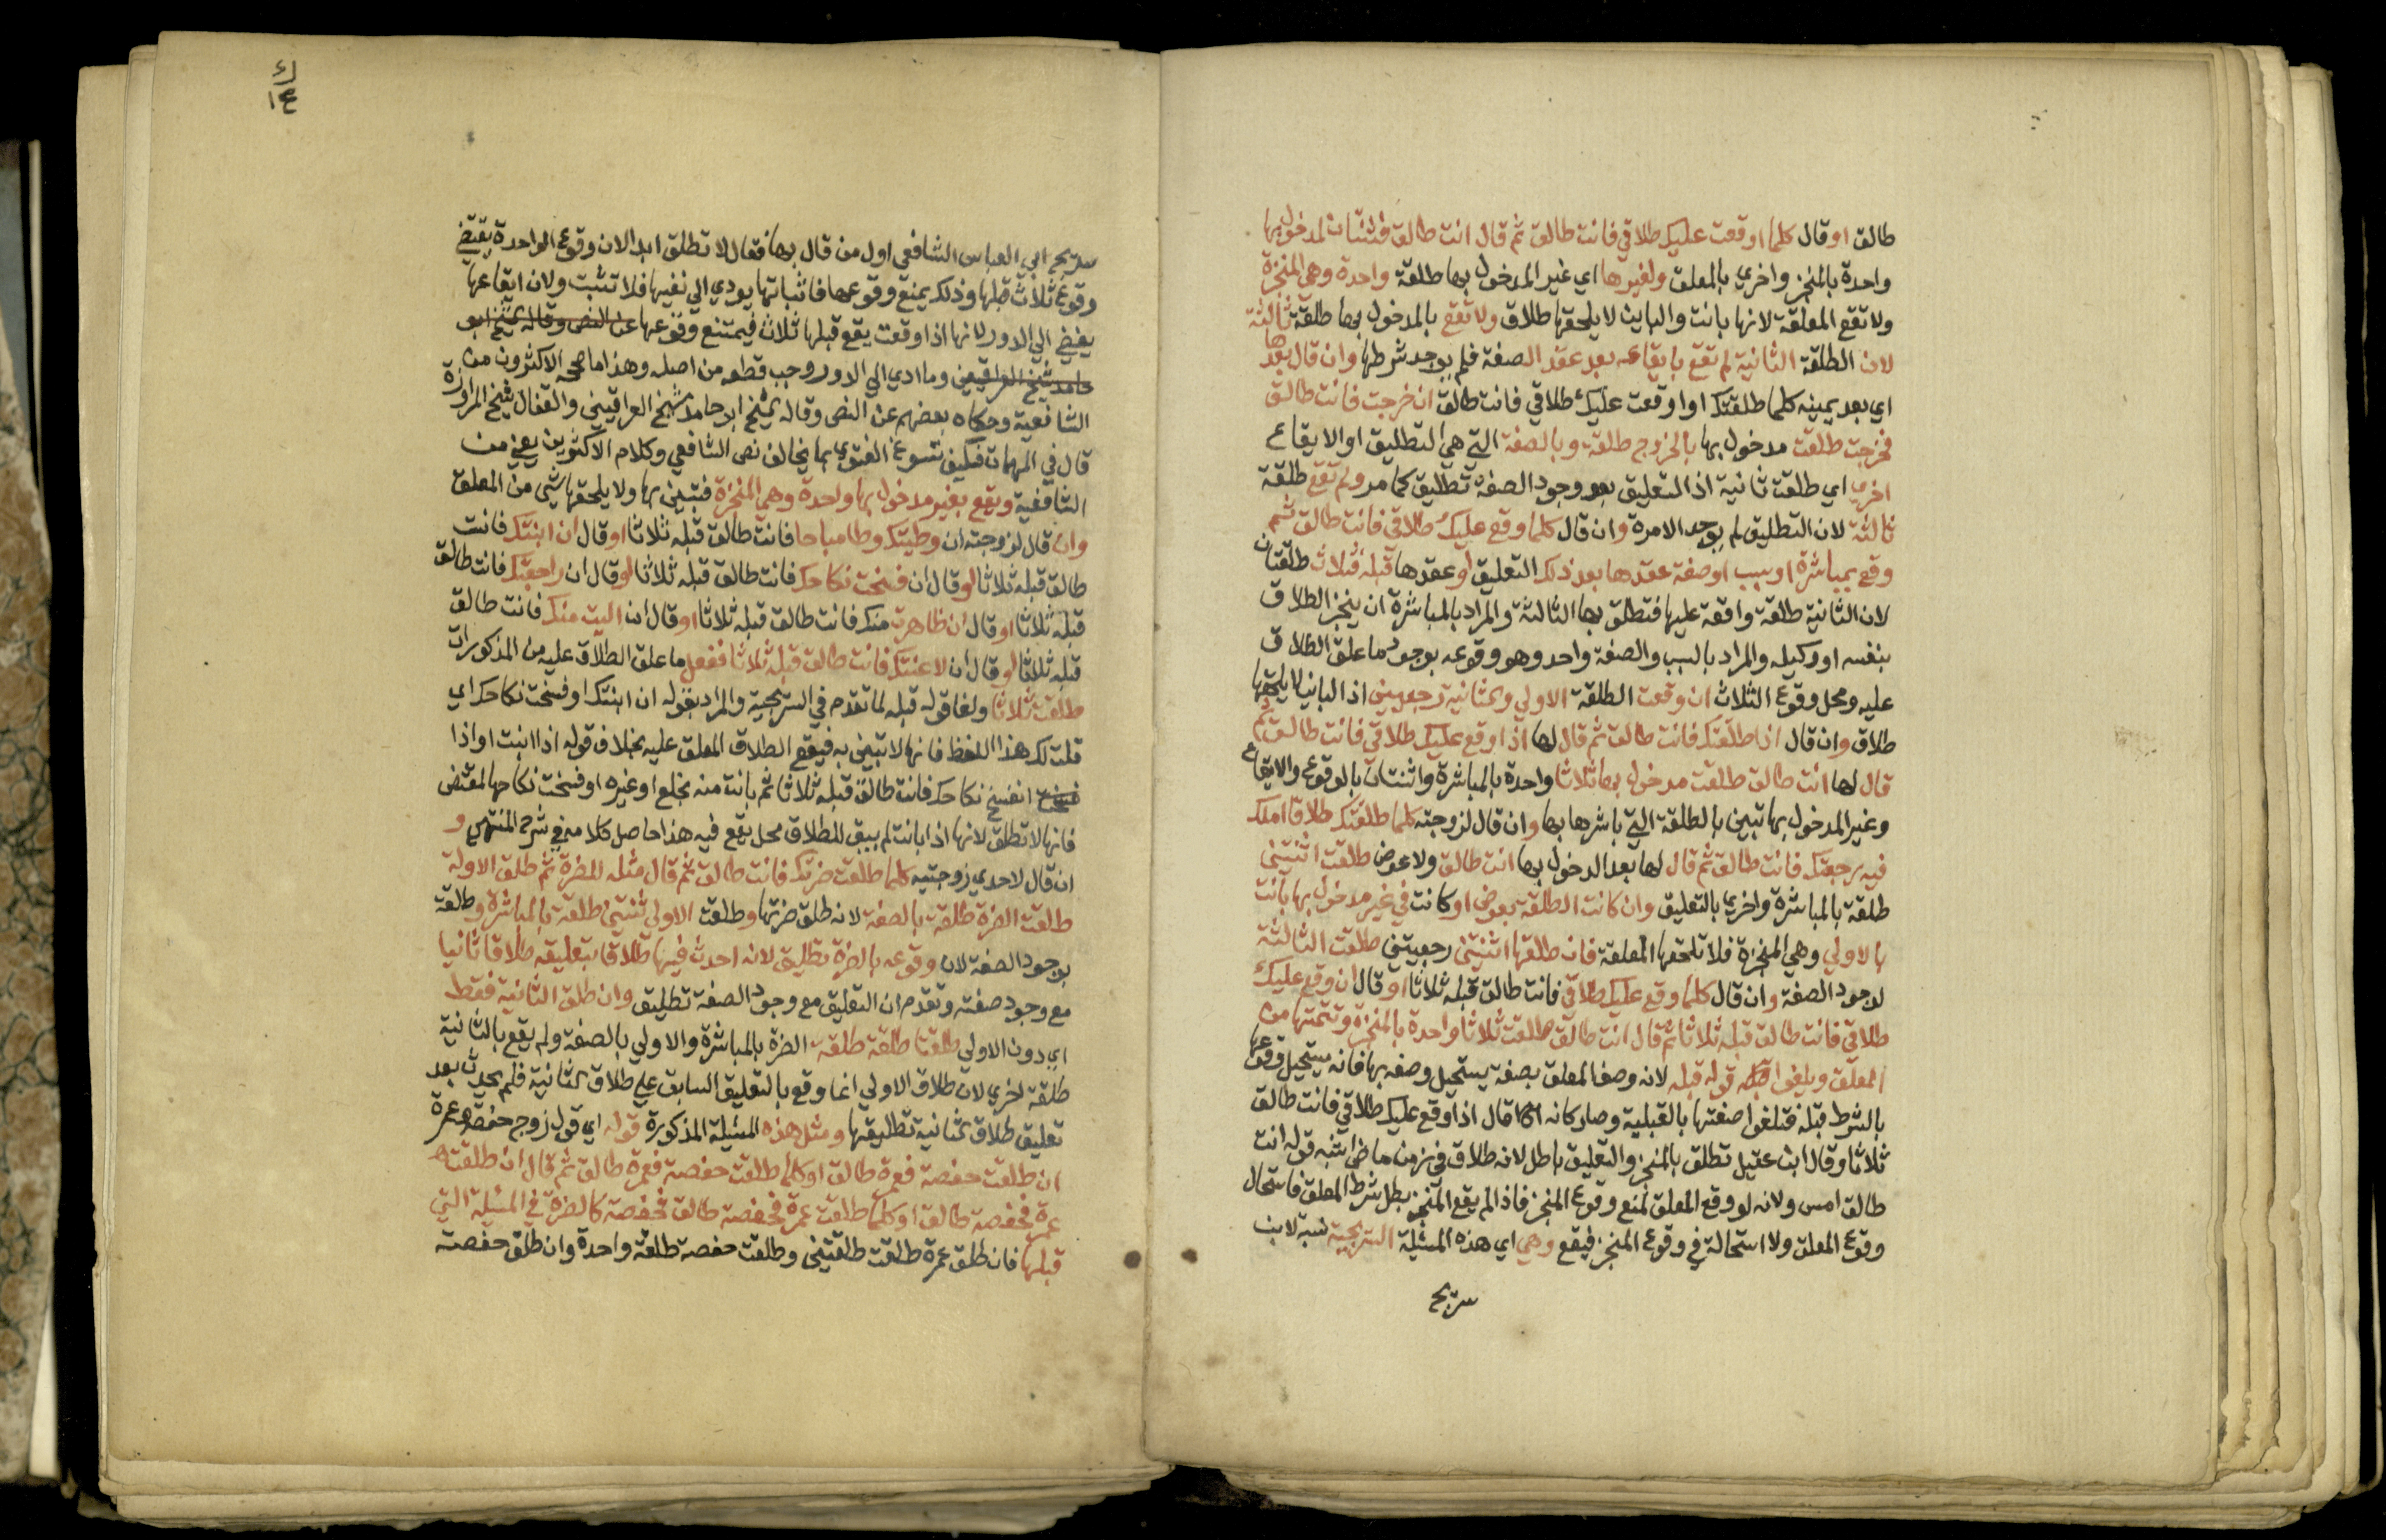 طالق او قال كلما اوقعت عليك طلاقي فانت طالق ثم قال انت طالق فثنتان لمدخول بها
واحدة بالمنجز واخري بالمعلق ولغيرها اي غير المدخول بها طلقة واحدة وهي المنجزة
ولا تقع المعلقة لانها بانت والباين لا يلحقها طلاق ولا تقع بالمدخول بها طلقة ثالثة
لان الطلقة الثانية لم تقع بايقاعه بعد عقد الصفة فلم يوجد شرطها وان قال بعدها
اي بعد يمينه كلما طلقتك او اوقعت عليك طلاقي فانت طالق ان خرجت فانت طالق
فخرجت طلقت مدخول بها بالخروج طلقة وبالصفة التي هي التطليق او الايقاع
اخري اي طلقت ثانية اذ التعليق مع وجود الصفة تطليق كما مر ولم تقع طلقة
ثالثة لان التطليق لم يوجد الا مرة وان قال كلما وقع عليك طلاقي فانت طالق ثم
وقع بمباشرة او سبب او صفة عقدها بعد ذلك التعليق او عقدها قبله فثلاث طلقتان
لان الثانية طلقة واقعة عليها فتطلق بها الثالثة والمراد بالمباشرة ان ينجز الطلاق
بنفسه او وكيله والمراد بالسبب والصفة واحد وهو وقوعه بوجود ما علق الطلاق
عليه ومحل وقوع الثلاث ان وقعت الطلقة الاولي والثانية رجعيين اذ الباين لا يلحقها
طلاق وان قال اذا طلقتك فانت طالق ثم قال لها اذا وقع عليك طلاقي فانت طالق ثم
قال لها انت طالق طلقت مدخول بها ثلاثا واحدة بالمباشرة واثنتان بالوقوع والايقاع
وغير المدخول بها تبين بالطلقة التي باشرها بها وان قال لزوجته كلما طلقتك طلاقا املك
فيه رجعتك فانت طالق ثم قال لها بعد الدخول بها انت طالق ولا عوض طلقت اثنتين
طلقة بالمباشرة واخري بالتعليق وان كانت الطلقة بعوض او كانت في غير مدخول بها بانت
بالاولي وهي المنجزة فلا تلحقها المعلقة فان طلقها اثنتين رجعيتين طلقت الثالثة
لوجود الصفة وان قال كلما وقع عليك طلاقي فانت طالق قبله ثلاثا او قال ان وقع عليك
طلاقي فانت طالق قبله ثلاثا ثم قال انت طالق طلقت ثلاثا واحدة بالمنجزة وتتمتها من
المعلق ويلغوا قوله قبله لانه وصف المعلق بصفة يستحيل وصفه بها فانه يستحيل وقوعها
بالشرط قبله فتلغوا صفتها بالقبلية وصار كانه قال اذا وقع عليك طلاقي فانت طالق
ثلاثا وقال ابن عقيل تطلق بالمنجز والتعليق باطل لانه طلاق في زمن ماض اشبه قوله انت
طالق امس ولانه لو وقع المعلق لمنع وقوع المنجز فاذا لم يقع المنجز بطل شرط المعلق فاستحال
وقوع المعلق ولا استحالة في وقوع المنجز فيقع وهي اي هذه المسئلة السريجية نسبة لابن
سريج
سريج ابي العباس الشافعي اول من قال بها فقال لا تطلق ابدا لان وقوع الواحدة يقتضي
وقوع ثلاث قبلها وذلك يمنع وقوعها فاثباتها يودي الي نفيها فلا تثبت ولان ايقاعها
يفضي الي الدور لانها اذا وقعت يقع قبلها ثلاث فيمتنع وقوعها عن النص وقاله الشيخ ابو
حامد شيخ العراقيين وما ادي الي الدور وجب قطعه من اصله وهذا ما صححه الاكثرون من
الشافعية وحكاه بعضهم عن النص وقاله الشيخ ابو حامد شيخ العراقيين والقفال شيخ المراوزة
قال في المهمات فكيف تسوغ الفتوي بما يخالف نص الشافعي وكلام الاكثرين يعني من
الشافعية ويقع بغير مدخول بها واحدة وهي المنجزة فتبين بها ولا يلحقها شي من المعلق
وان قال لزوجته ان وطيتك وطا مباحا فانت طالق قبله ثلاثا او قال ان ابنتك فانت
طالق قبله ثلاثا او قال ان فسخت نكاحك فانت طالق قبله ثلاثا او قال ان راجعتك فانت طالق
قبله ثلاثا او قال ان ظاهرت منك فانت طالق قبله ثلاثا او قال ان اليت منك فانت طالق
قبله ثلاثا او قال ان لاعنتك فانت طالق قبله ثلاثا ففعل ما علق الطلاق عليه من المذكورات
طلقت ثلاثا ولغا قوله قبله لما تقدم في السريجية والمراد بقوله ان ابنتك او فسخت نكاحك اي
قلت لك هذا اللفظ فانها لا تبين به فيقع الطلاق المعلق عليه بخلاف قوله اذا ابنت او اذا
انفسخ نكاحك فانت طالق قبله ثلاثا ثم بانت منه بخلع او غيره او فسخت نكاحها لمقتض
فانها لا تطلق لانها اذا بانت لم يبق للطلاق محل يقع فيه هذا حاصل كلامه في شرح المنتهى و
ان قال لاحدي زوجتيه كلما طلقت ضرتك فانت طالق ثم قال مثله للضرة ثم طلق الاولة
طلقت الضرة طلقة بالصفة لانه طلق ضرتها وطلقت الاولي ثنتين طلقة بالمباشرة وطلقة
بوجود الصفة لان وقوعه بالضرة تطليق لانه احدث فيها طلاقا بتعليقه طلاقا ثانيا
مع وجود صفته وتقدم ان التعليق مع وجود الصفة تطليق وان طلق الثانية فقط
اي دون الاولي طلقتا طلقة طلقة الضرة بالمباشرة والاولي بالصفة ولم يقع بالثانية
طلقة اخري لان طلاق الاولي انما وقع بالتعليق السابق علي طلاق الثانية فلم يحدث بعد
تعليق طلاق الثانية تطليقها ومثل هذه المسئلة المذكورة قوله اي قول زوج حفصة وعمرة
ان طلقت حفصة فعمرة طالق او كلما طلقت حفصة فعمرة طالق ثم قال ان طلقت
عمرة فحفصة طالق او كلما طلقت عمرة فحفصة طالق فحفصة كالضرة في المسئلة التي
قبلها فان طلق عمرة طلقت طلقتين وطلقت حفصة طلقة واحدة وان طلق حفصة